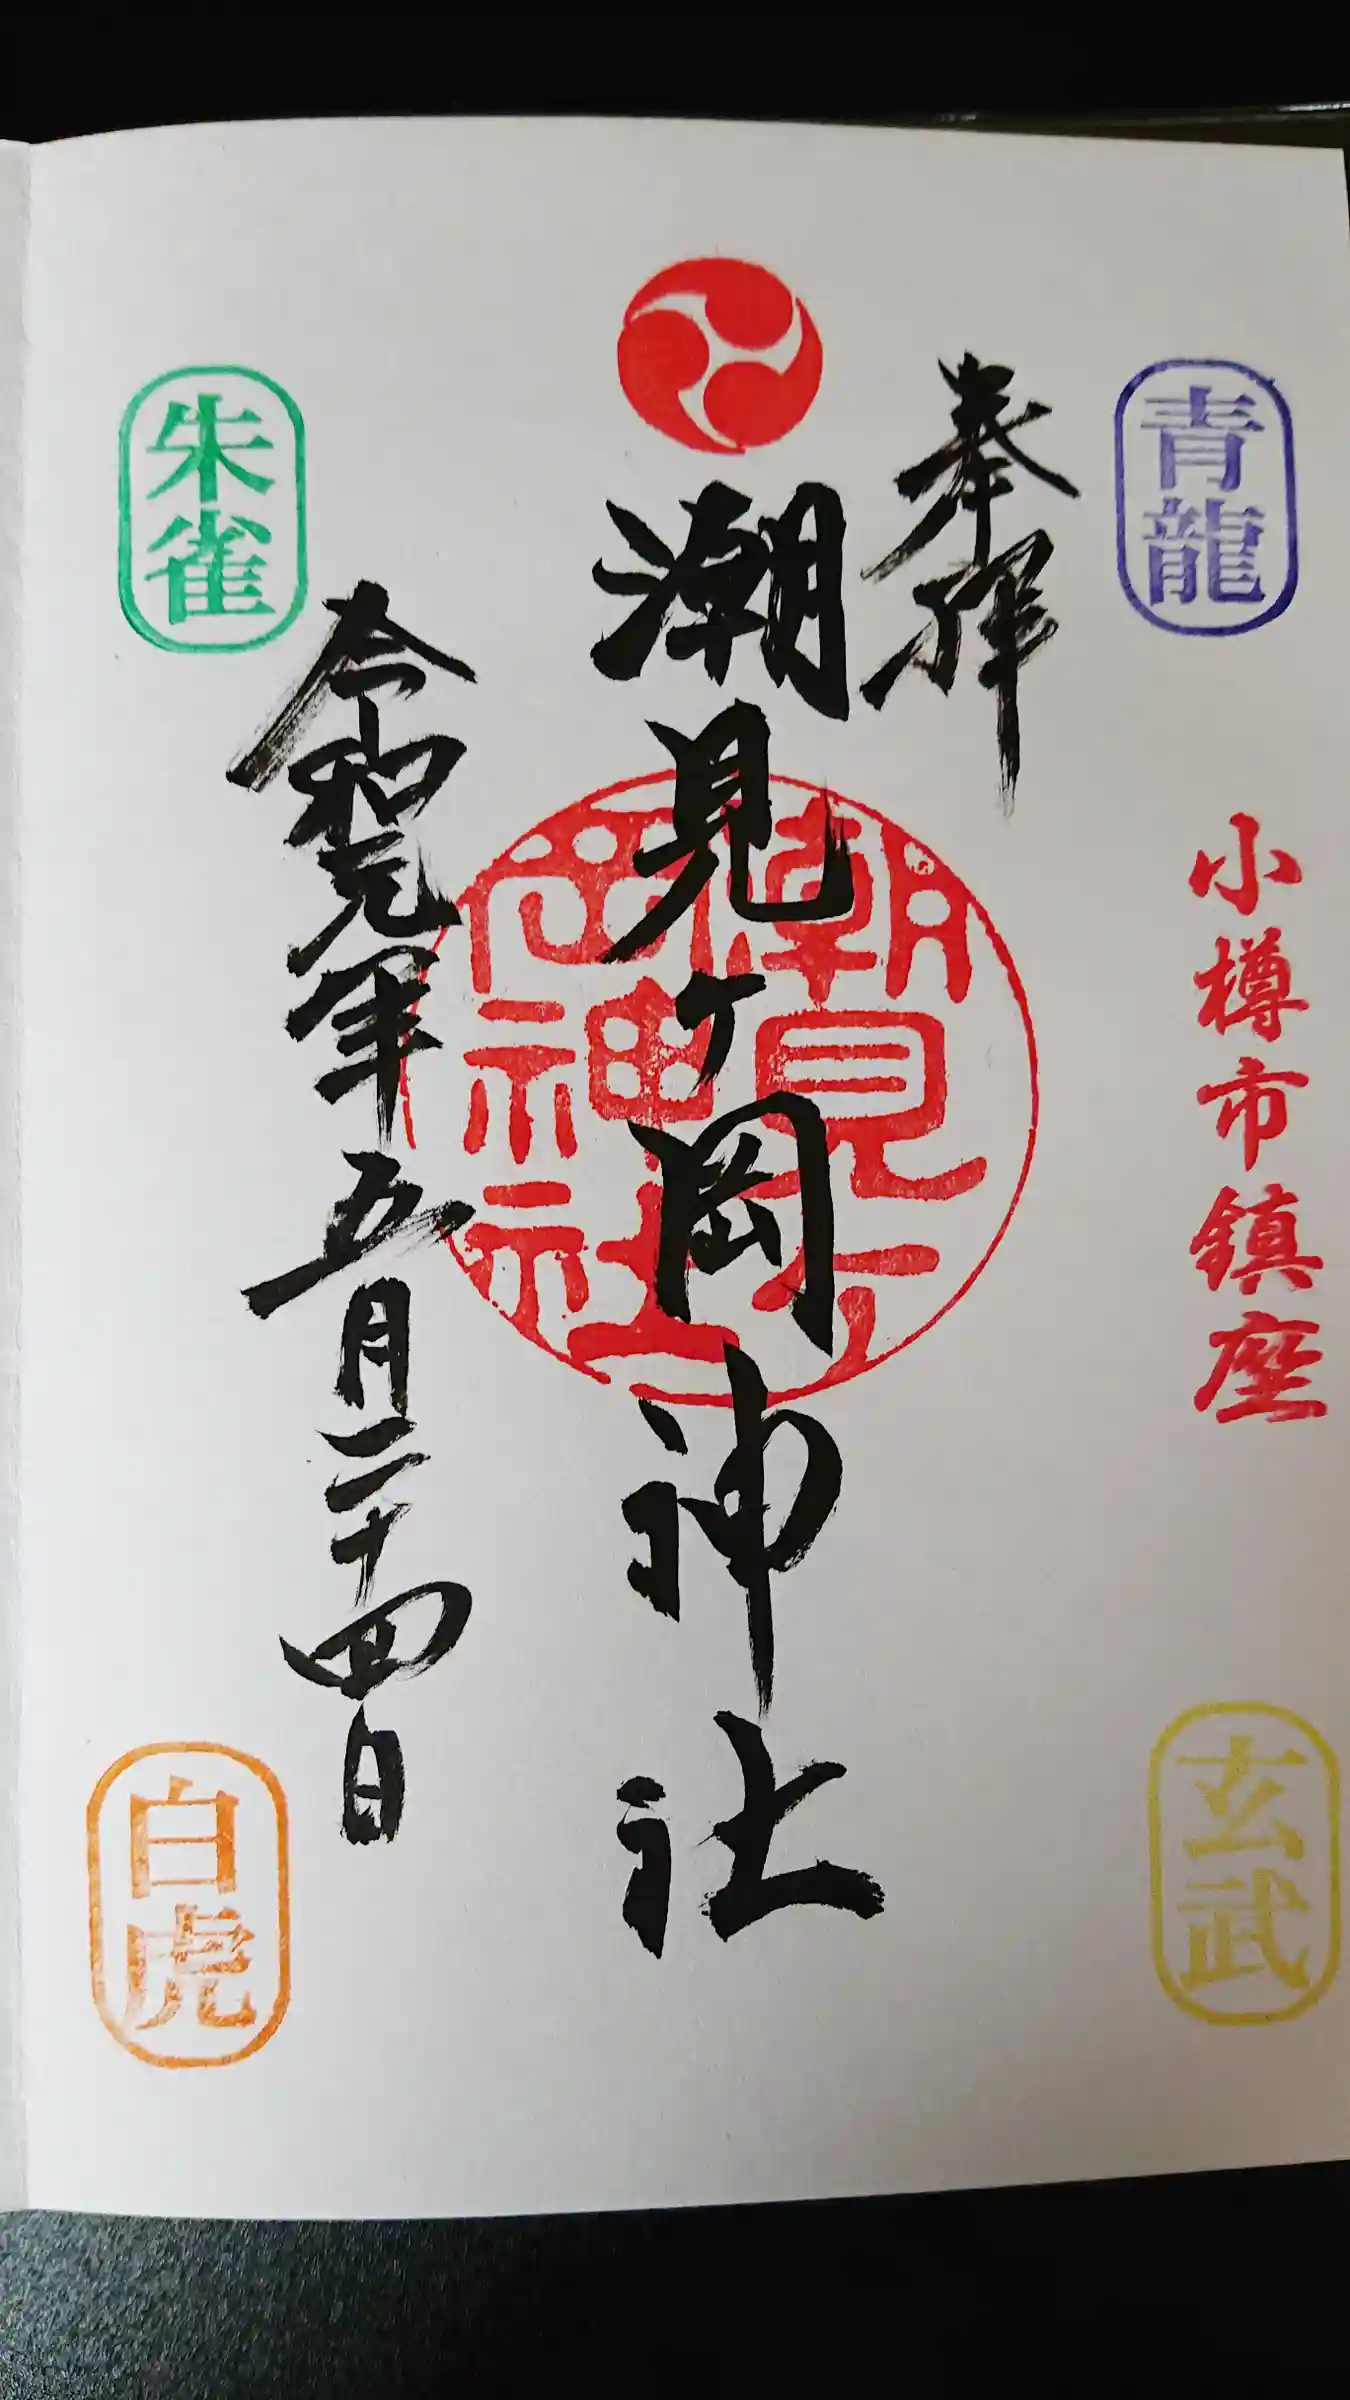 青龍
小樽市鎮座
玄武
奉拝
潮見ヶ岡神社
潮見ヶ
岡神社
令和元年五月二十四日
朱雀
白虎